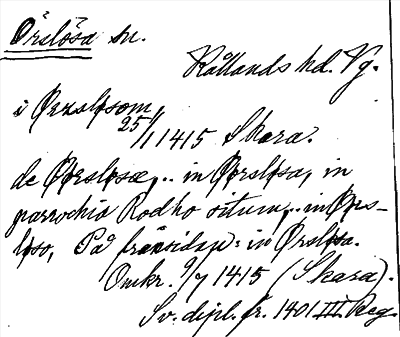 Örslösa sn.
Kållands hd. Vg.
i Ørzsløsom,
25/1 1415 Skara.
de Ørsløsæ, .. in Ørsløsa, in
parrochia Rodho situm, .. in Ørs-
løso, På framsidan: in Ørsløsa.
Omkr. 9/7 1415 (Skara).
Sv. dipl. fr. 1401 III Reg.